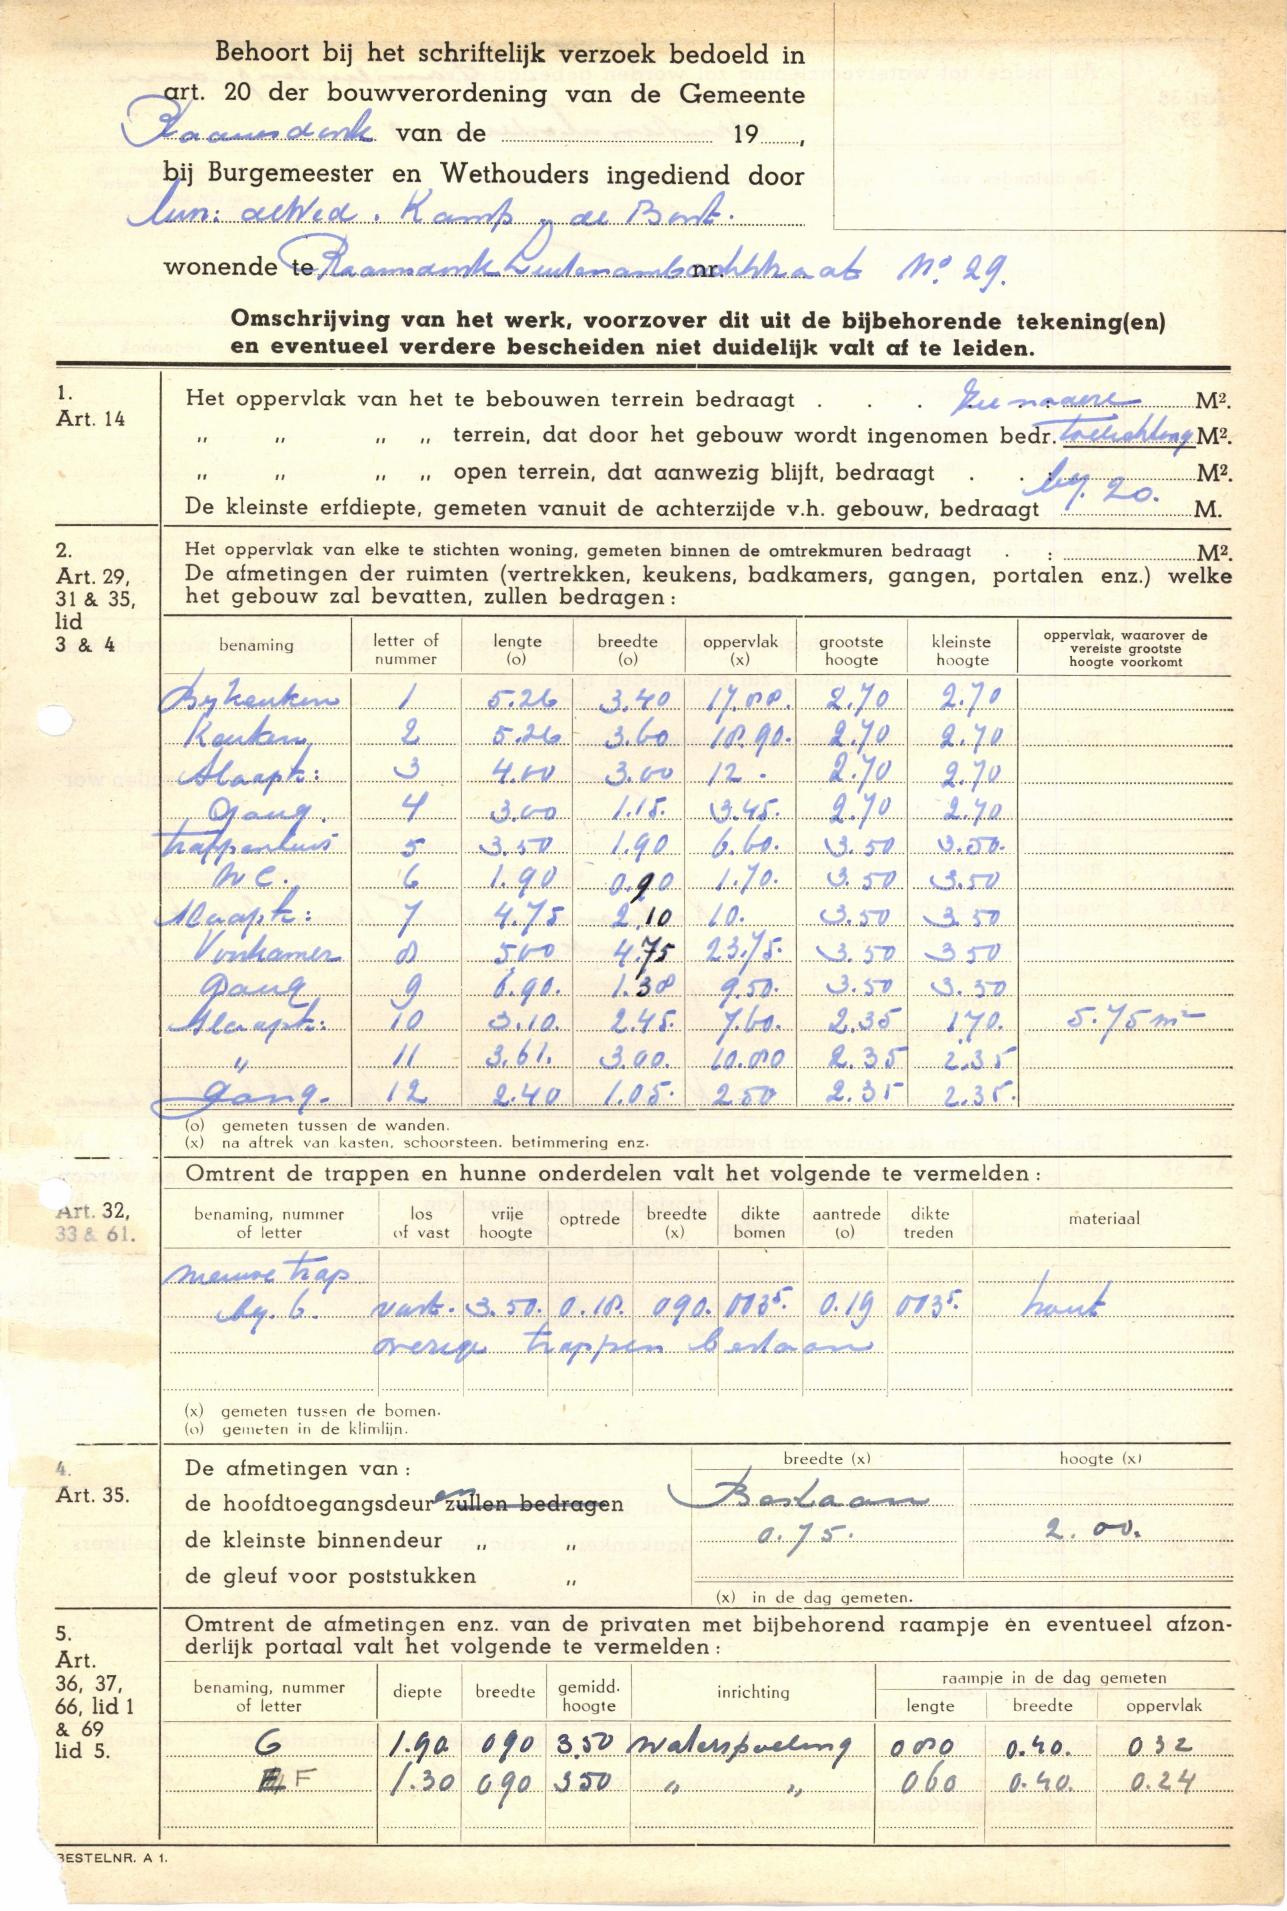 Behoort bij het schriftelijk verzoek bedoeld in
art. 20 der bouwverordening van de Gemeente
Raamsdonk van de 19 ,
bij Burgemeester en Wethouders ingediend door
deWed. Kamp de Bont.
wonende te Raamsdonk Luitenambachtstraat nr. No. 29.
Omschrijving van het werk, voorzover dit uit de bijbehorende tekening(en)
en eventueel verdere bescheiden niet duidelijk valt af te leiden.
1.
Art. 14
Het oppervlak van het te bebouwen terrein bedraagt . . . Zie nadere M².
„ „ „ „ terrein, dat door het gebouw wordt ingenomen bedr. toelichting M².
„ „ „ „ open terrein, dat aanwezig blijft, bedraagt . . : M².
De kleinste erfdiepte, gemeten vanuit de achterzijde v.h. gebouw, bedraagt bij. 20. M.
2.
Art. 29,
31 & 35,
lid
3 & 4
Het oppervlak van elke te stichten woning, gemeten binnen de omtrekmuren bedraagt . : M².
De afmetingen der ruimten (vertrekken, keukens, badkamers, gangen, portalen enz.) welke
het gebouw zal bevatten, zullen bedragen :
benaming letter of nummer lengte (o) breedte (o) oppervlak (x) grootste hoogte kleinste hoogte oppervlak, waarover de vereiste grootste hoogte voorkomt
Bijkeuken 1 5.26 3.40 17.88. 2.70 2.70
Keuken 2 5.26 3.60 18.90. 2.70 2.70
Slaapk: 3 4.00 3.00 12 . 2.70 2.70
Gang. 4 3.00 1.15. 3.45. 2.70 2.70
trappenhuis 5 3.50 1.90 6.60. 3.50 3.50.
W C. 6 1.90 0.90 1.70. 3.50 3.50
Slaapk: 7 4.75 2.10 10. 3.50 3.50
Voorkamer 8 500 4.75 23.75. 3.50 350
Gang 9 6.90. 1.38 9.50. 3.50 3.50
Slaapk: 10 3.10. 2.45. 7.60. 2.35 170. 5.75 m²
„ 11 3.61. 3.00. 10.80 2.35 2.35
gang. 12 2.40 1.05. 250 2.35 2.35.
(o) gemeten tussen de wanden.
(x) na aftrek van kasten, schoorsteen, betimmering enz.
Art. 32,
33 & 61.
Omtrent de trappen en hunne onderdelen valt het volgende te vermelden :
benaming, nummer of letter los of vast vrije hoogte optrede breedte (x) dikte bomen aantrede (o) dikte treden materiaal
nieuwe trap
bij. 6. vast. 3.50. 0.18. 090. 0035. 0.19 0035. hout
overige trappen bestaan
(x) gemeten tussen de bomen.
(o) gemeten in de klimlijn.
4.
Art. 35.
De afmetingen van : breedte (x) hoogte (x)
de hoofdtoegangsdeur en zullen bedragen Bestaan
de kleinste binnendeur „ „ 0.75. 2.00.
de gleuf voor poststukken „
(x) in de dag gemeten.
5.
Art.
36, 37,
66, lid 1
& 69
lid 5.
Omtrent de afmetingen enz. van de privaten met bijbehorend raampje en eventueel afzon-
derlijk portaal valt het volgende te vermelden :
benaming, nummer of letter diepte breedte gemidd. hoogte inrichting raampje in de dag gemeten
lengte breedte oppervlak
G 1.90 090 3.50 waterspoeling 080 0.40. 032
F 1.30 090 350 „ „ 060 0.40. 0.24
BESTELNR. A 1.